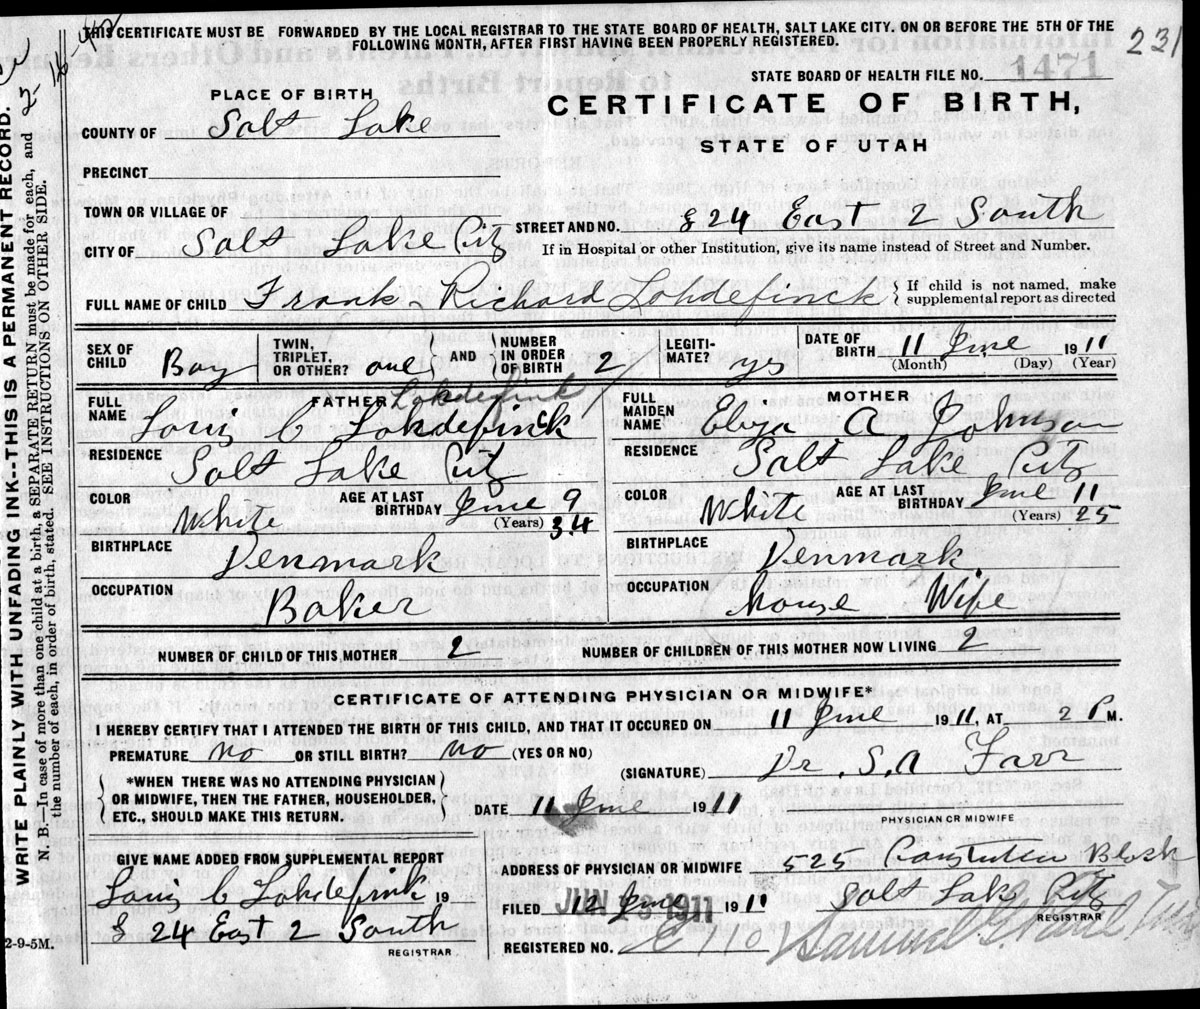 THIS CERTIFICATE MUST BE FORWARDED BY THE LOCAL REGISTRAR TO THE STATE BOARD OF HEALTH, SALT LAKE CITY. ON OR BEFORE THE 5TH OF THE
FOLLOWING MONTH, AFTER FIRST HAVING BEEN PROPERLY REGISTERED.
231
STATE BOARD OF HEALTH FILE NO. 1471
PLACE OF BIRTH
CERTIFICATE OF BIRTH,
STATE OF UTAH
COUNTY OF Salt Lake
PRECINCT
TOWN OR VILLAGE OF
STREET AND NO. 824 East 2 South
CITY OF Salt Lake City
If in Hospital or other Institution, give its name instead of Street and Number.
FULL NAME OF CHILD Frank Richard Lohdefinck { If child is not named, make
supplemental report as directed
SEX OF CHILD Boy
TWIN, TRIPLET, OR OTHER? one
AND NUMBER IN ORDER OF BIRTH 2
LEGITI-MATE? yes
DATE OF BIRTH 11 June 1911
(Month) (Day) (Year)
FATHER
FULL NAME Lohdefink
Louis C Lohdefinck
RESIDENCE Salt Lake City
COLOR White
AGE AT LAST BIRTHDAY June 9
(Years) 34
BIRTHPLACE Denmark
OCCUPATION Baker
MOTHER
FULL MAIDEN NAME Eliza A Johnson
RESIDENCE Salt Lake City
COLOR White
AGE AT LAST BIRTHDAY June 11
(Years) 25
BIRTHPLACE Denmark
OCCUPATION House Wife
NUMBER OF CHILD OF THIS MOTHER 2
NUMBER OF CHILDREN OF THIS MOTHER NOW LIVING 2
CERTIFICATE OF ATTENDING PHYSICIAN OR MIDWIFE*
I HEREBY CERTIFY THAT I ATTENDED THE BIRTH OF THIS CHILD, AND THAT IT OCCURED ON 11 June 1911, AT 2 P M.
PREMATURE no OR STILL BIRTH? no (YES OR NO)
(SIGNATURE) Dr. S. A Farr
{ *WHEN THERE WAS NO ATTENDING PHYSICIAN
OR MIDWIFE, THEN THE FATHER, HOUSEHOLDER,
ETC., SHOULD MAKE THIS RETURN. }
DATE 11 June 1911
PHYSICIAN OR MIDWIFE
GIVE NAME ADDED FROM SUPPLEMENTAL REPORT
Louis C Lohdefink 19
824 East 2 South
REGISTRAR
ADDRESS OF PHYSICIAN OR MIDWIFE 525 Constitution Block
Salt Lake City
FILED 12 June 1911
JUN 1911
REGISTRAR
REGISTERED NO.
WRITE PLAINLY WITH UNFADING INK--THIS IS A PERMANENT RECORD.
N. B.—In case of more than one child at a birth, a SEPARATE RETURN must be made for each, and
the number of each, in order of birth, stated. SEE INSTRUCTIONS ON OTHER SIDE.
2-9-5M.